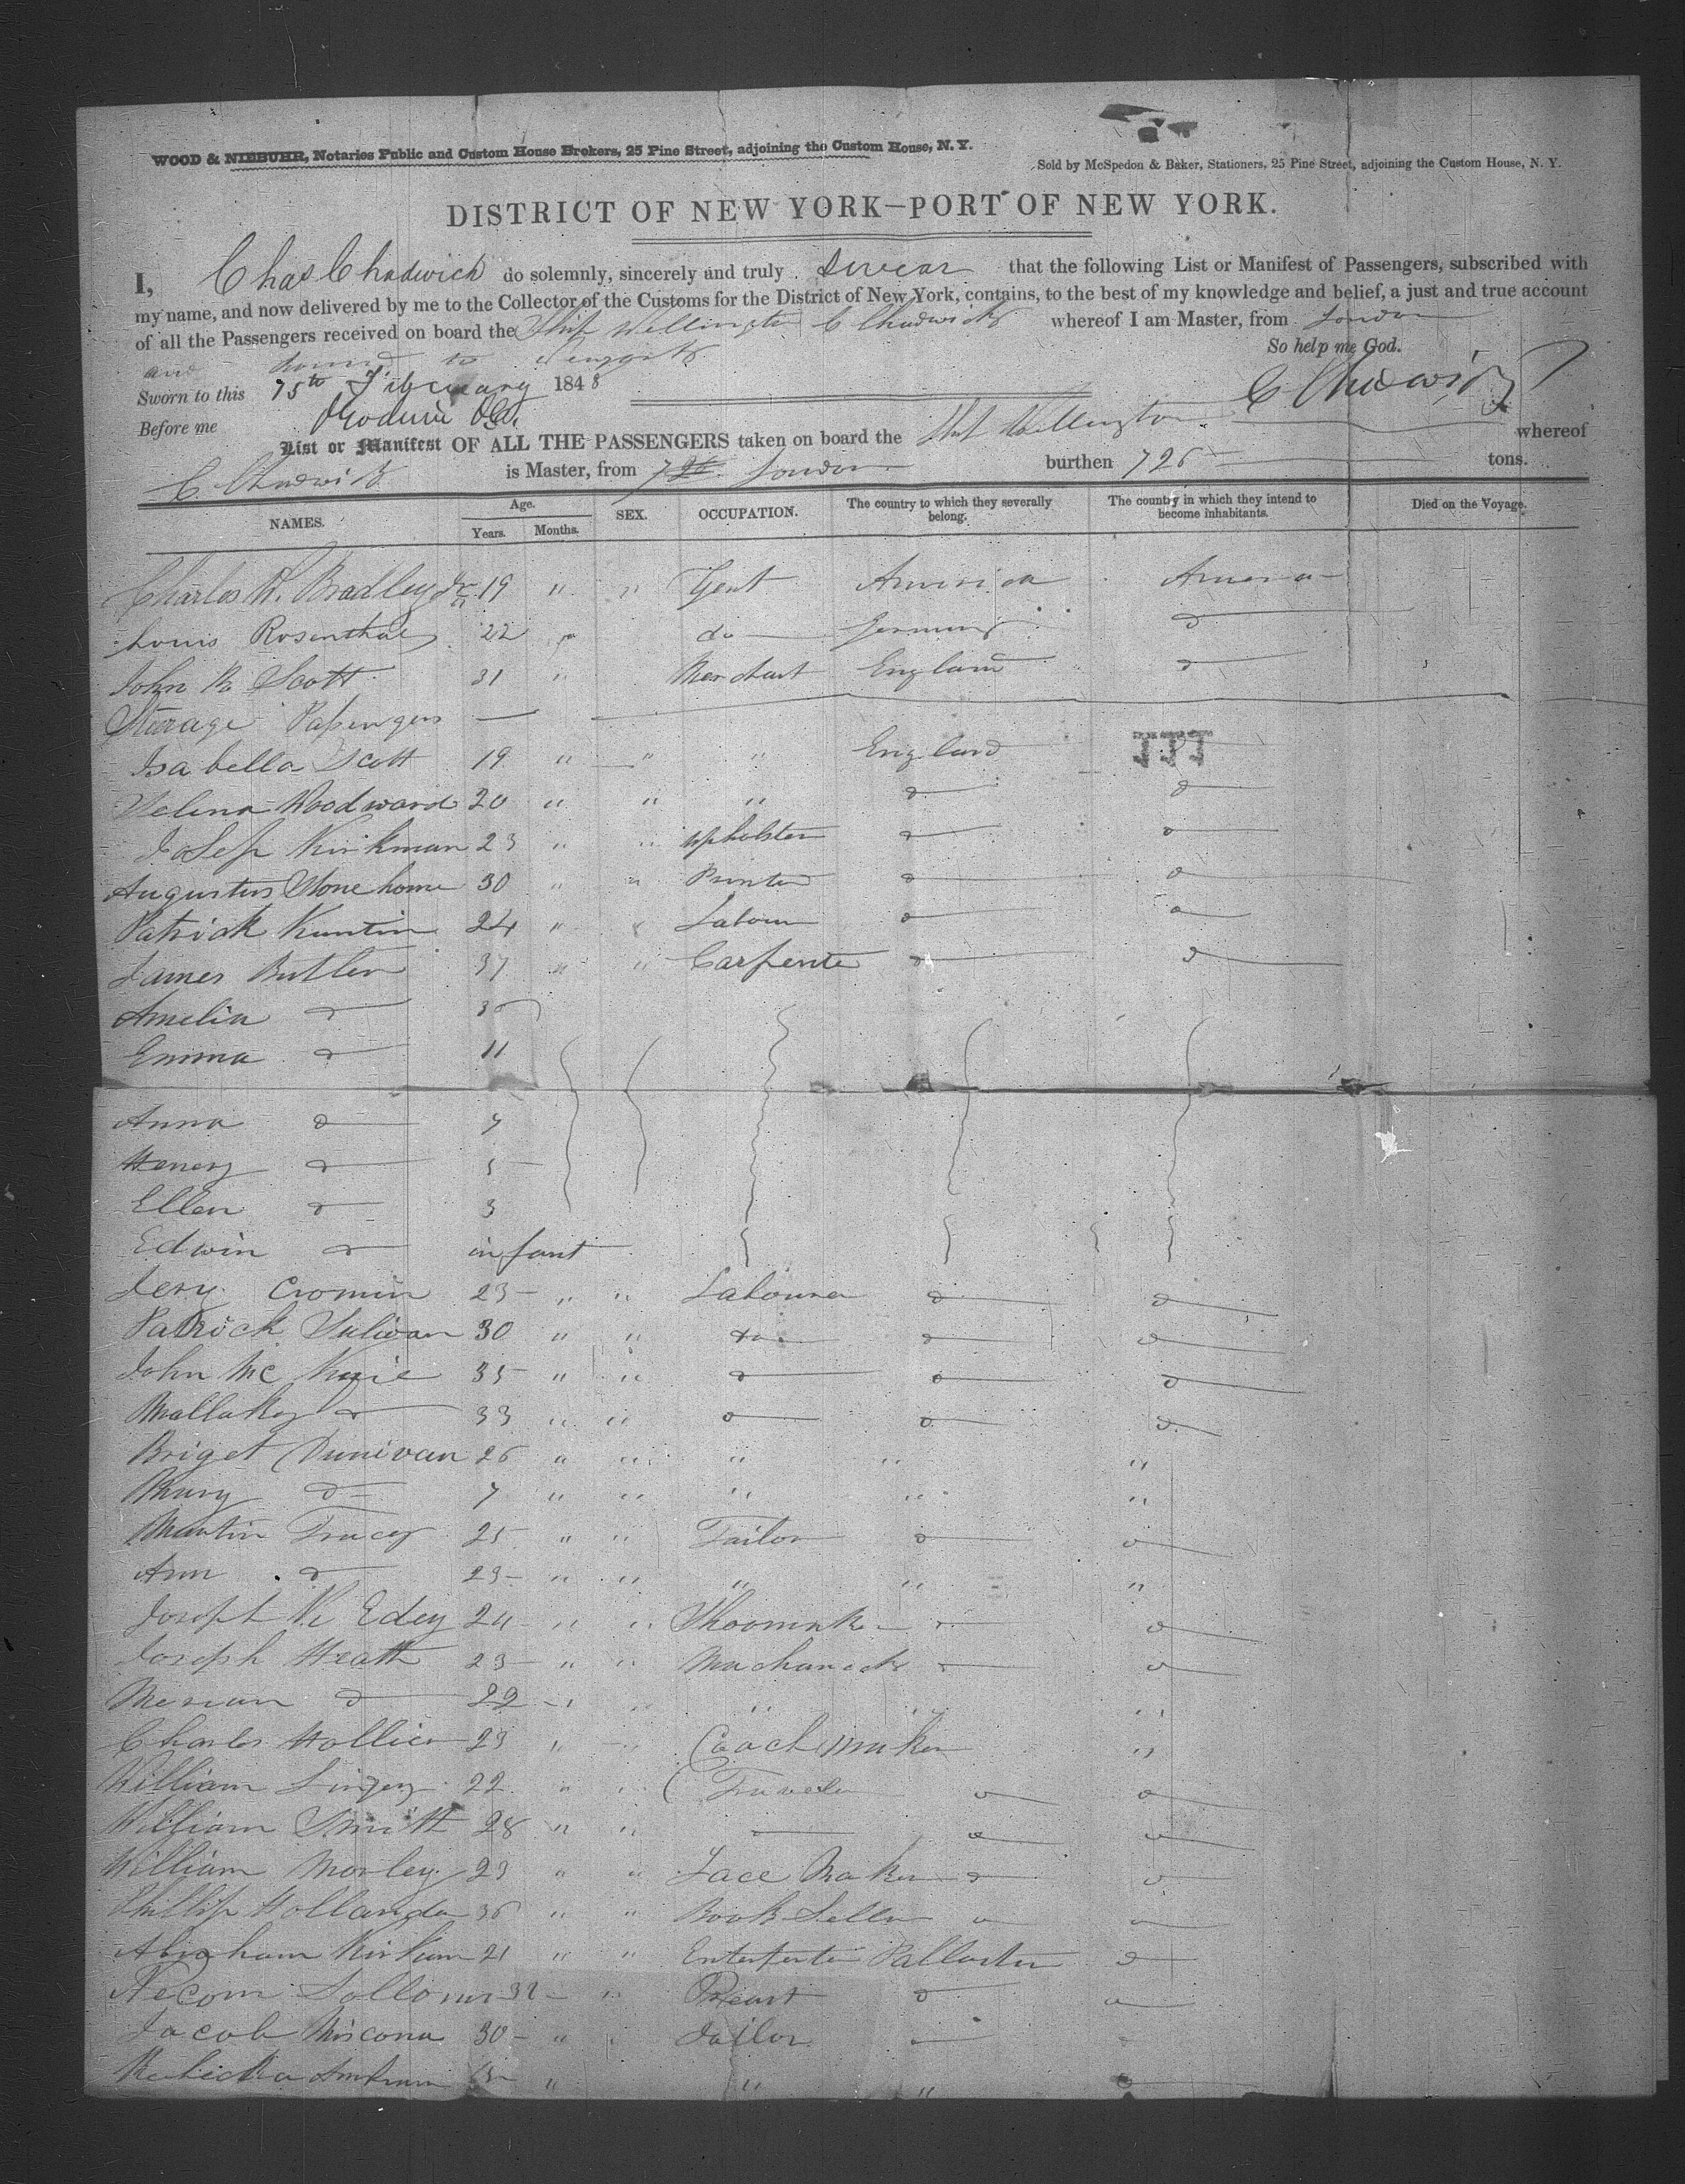 WOOD & NIEBUHR, Notaries Public and Custom House Brokers, 25 Pine Street, adjoining the Custom House, N. Y.
Sold by McSpedon & Baker, Stationers, 25 Pine Street, adjoining the Custom House, N. Y.
DISTRICT OF NEW YORK—PORT OF NEW YORK.
I, Chas Chadwick do solemnly, sincerely and truly swear that the following List or Manifest of Passengers, subscribed with
my name, and now delivered by me to the Collector of the Customs for the District of New York, contains, to the best of my knowledge and belief, a just and true account
of all the Passengers received on board the Ship Wellington C Chadwick whereof I am Master, from London
and bound to
So help me God.
Sworn to this 15th February 1848
C Chadwick
Before me
List or Manifest OF ALL THE PASSENGERS taken on board the Ship Wellington whereof
C. Chadwick is Master, from London burthen 726 tons.
NAMES. Age. Years. Months. SEX. OCCUPATION. The country to which they severally belong. The country in which they intend to become inhabitants. Died on the Voyage.
Charles H. Bradley Jr 19 " " Gent America America
Louis Rosenthal 22 " do Germany do
John B Scott 31 " Merchant England do
Sterrage Pasengers
Isabella Scott 19 " " " England do
Selina Woodward 20 " " " do do
Josep Kirkman 23 " " upholster do do
Augustus Stonehome 30 " " Printer do do
Patrick 24 " " Labour do do
James Butler 37 " " Carpente do do
Amelia do
Emma do 11
Anna do 7
Henery do 5
Ellen do 3
Edwin do infant
Jery Cromin 23 " " Labourer do do
Patrick Sulivan 30 " " do do do
John Mc 35 " " do do do
do 33 " " do do do
Briget Dunivan 26 " " " " "
Mary do 7 " " " " "
Martin Tracey 25 " " Tailor do do
Ann do 23 " " " " "
Joseph Mc Edey 24 " " Shoomaker do
Joseph Heath 23 " " Machanick do
do 22 " " " " "
Charles Hollier 23 " " Coach maker "
William 22 " " do do
William Smith 28 " " do do
William Morley 23 " " Lace Maker do do
Phillip Hollander 36 " " Book Seller do do
Abraham 21 " " do
32 " do do
Jacob 30 " Tailor
" " " do